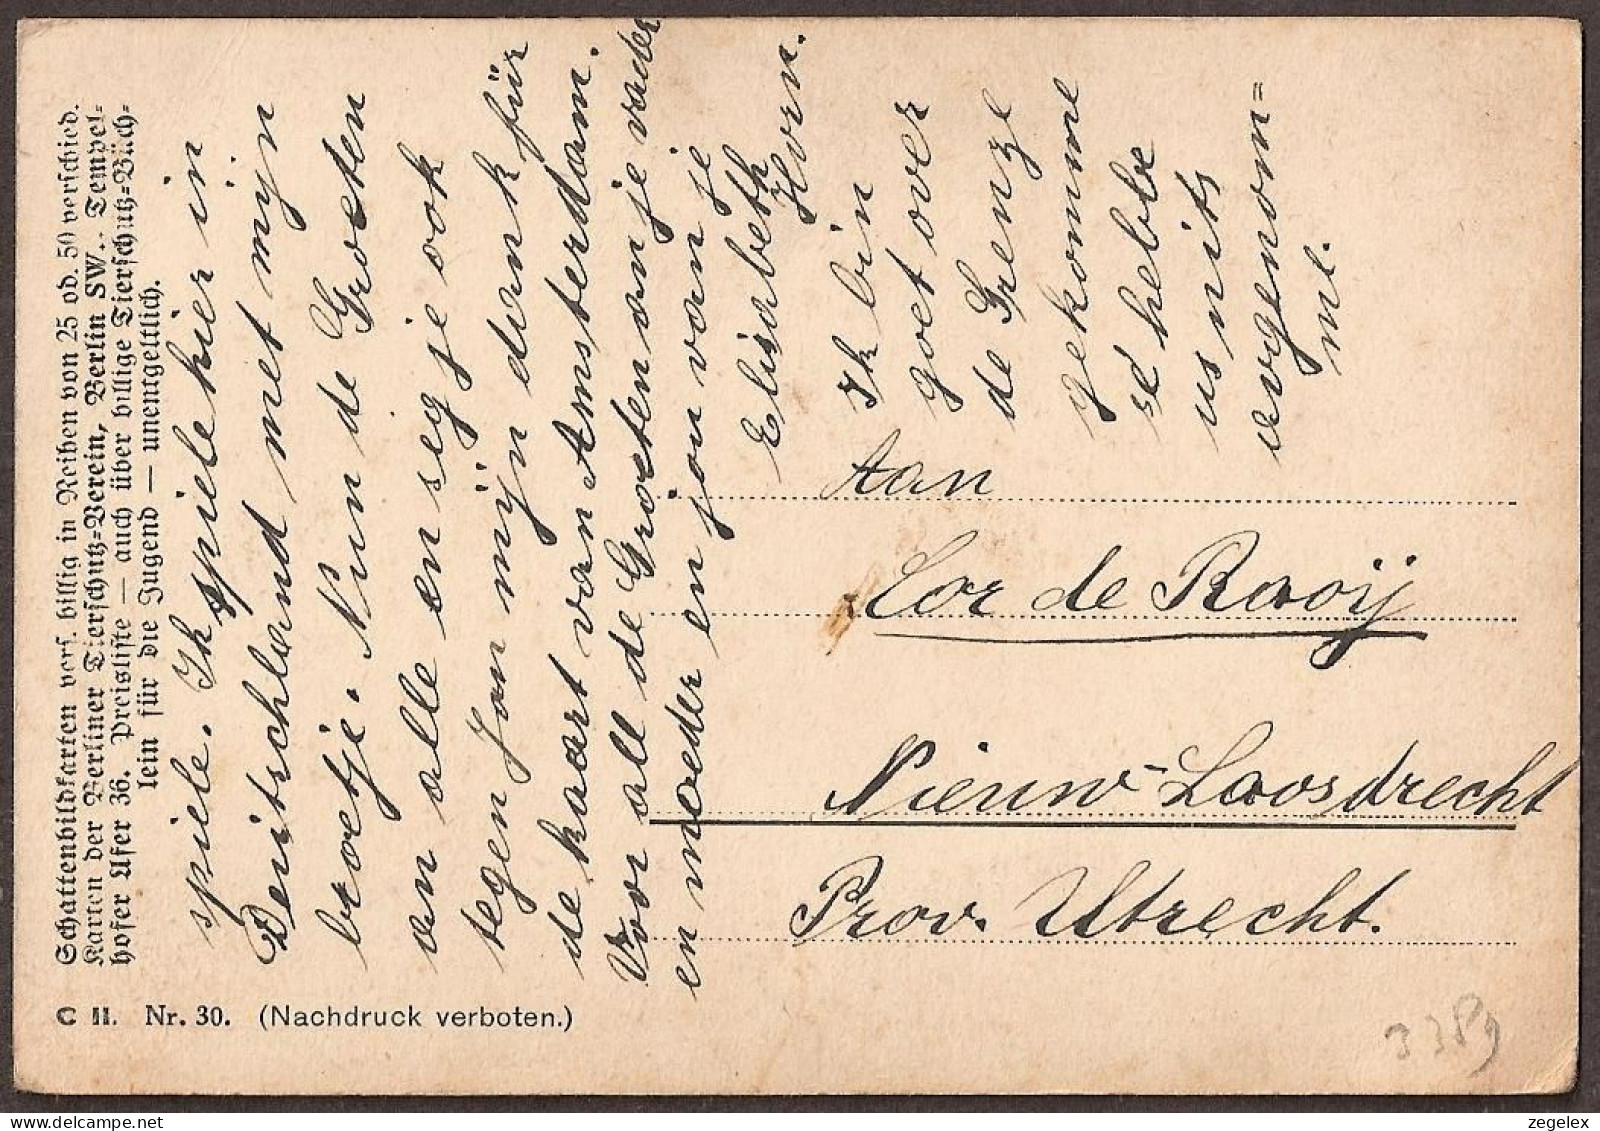 Schattenbildkarten vers. billig in Reihen von 25 od. 50 verschied.
Karten der Berliner Tierschutz=Verein, Berlin SW., Tempel-
hofer Ufer 36. Preisliste — auch über billige Tierschutz=Büch=
lein für die Jugend — unentgeltlich.
spiele. Ik spiele hier in
Deutschland met mijn
broetje. Nun de Groeten
an alle en seg je ook
tegen Jan mijn dank für
de kaart van Amsterdam.
Voor all de Groeten an je vader
en moeder en jou van je
Elisabeth
Horn.
Ik bin
goet over
de Grenze
gekomme
se hebbe
us nits
avgenom=
me.
Aan
Cor de Raaij
Nieuw-Loosdrecht
Prov. Utrecht.
C II. Nr. 30. (Nachdruck verboten.)
3389
zegelex